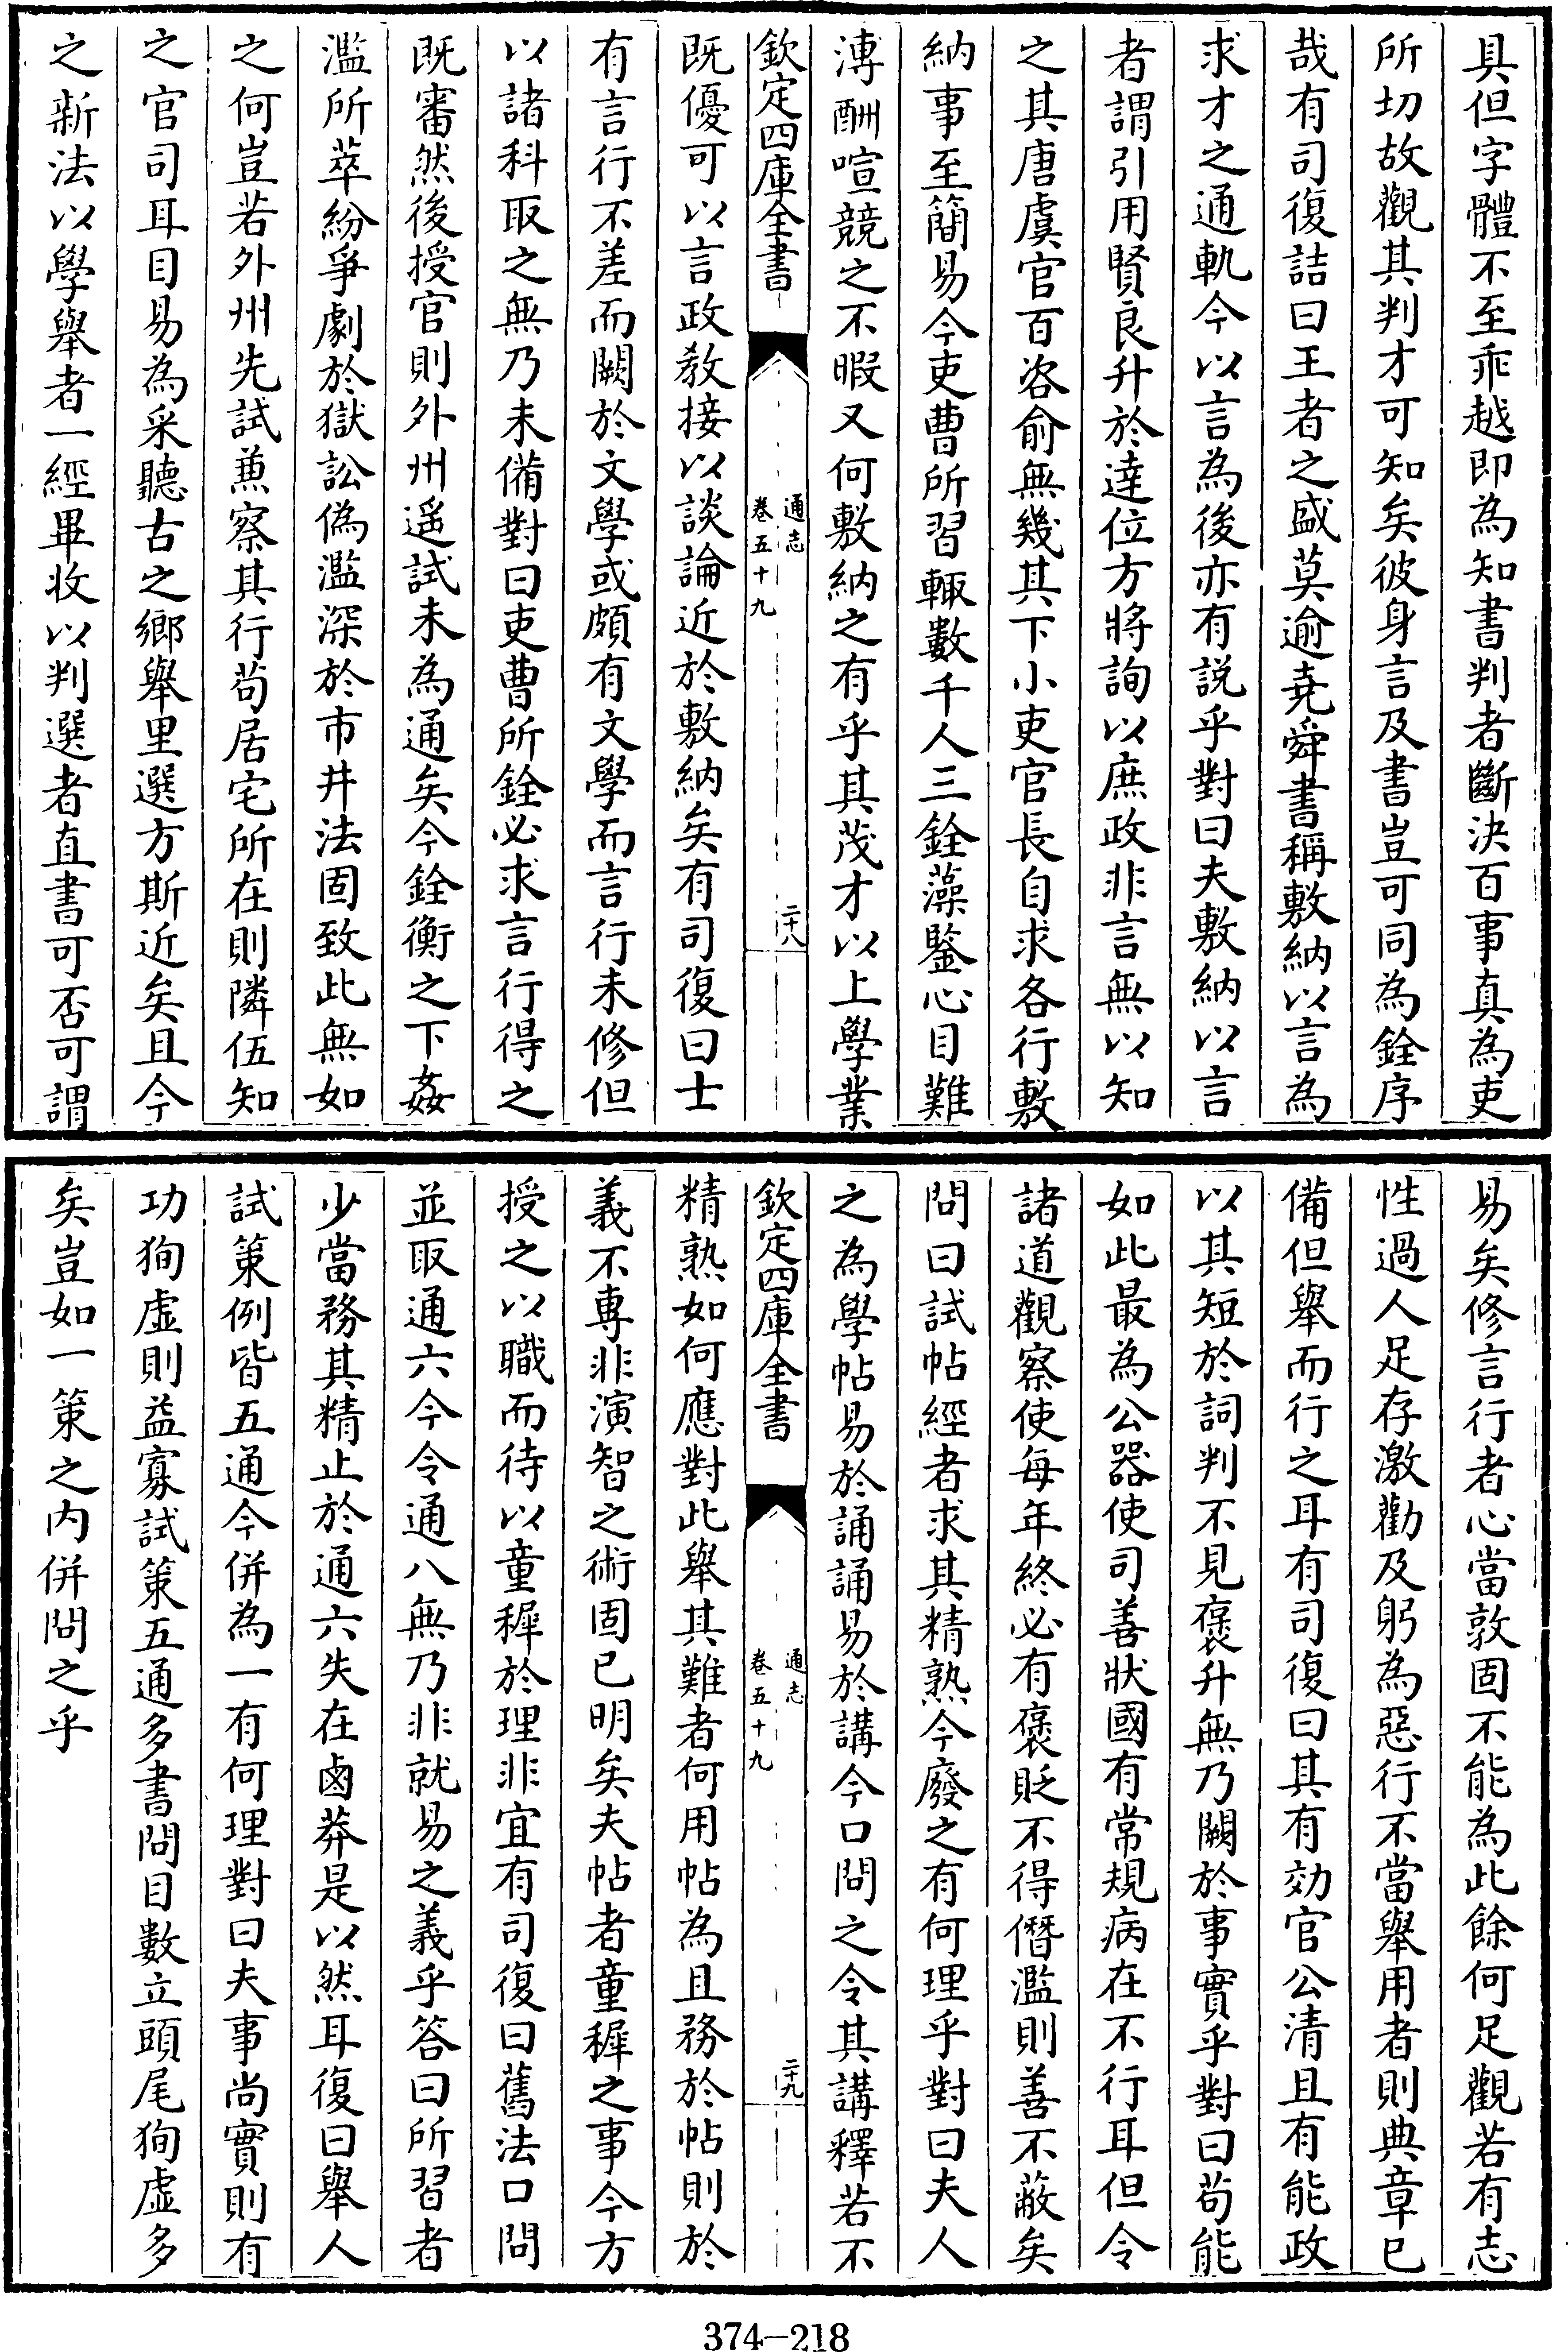 具但字體不至乖越即為知書判者斷決百事真為吏
所切故觀其判才可知矣彼身言及書豈可同為銓序
哉有司復詰曰王者之盛莫逾堯舜書稱敷納以言為
求才之通軌今以言為後亦有説乎對曰夫敷納以言
者謂引用賢良升於達位方將詢以庶政非言無以知
之其唐虞官百咨俞無幾其下小吏官長自求各行敷
納事至簡易今吏曹所習輒數千人三銓藻鑒心目難
溥酬喧競之不暇又何敷納之有乎其茂才以上學業
欽定四庫全書
通志
卷五十九
二十八
既優可以言政教接以談論近於敷納矣有司復曰士
有言行不差而闕於文學或頗有文學而言行未修但
以諸科取之無乃未備對曰吏曹所銓必求言行得之
既審然後授官則外州遥試未為通矣今銓衡之下姦
濫所萃紛爭劇於獄訟偽濫深於市井法固致此無如
之何豈若外州先試兼察其行苟居宅所在則隣伍知
之官司耳目易為采聽古之鄉舉里選方斯近矣且今
之新法以學舉者一經畢收以判選者直書可否可謂
易矣修言行者心當敦固不能為此餘何足觀若有志
性過人足存激勸及躬為惡行不當舉用者則典章已
備但舉而行之耳有司復曰其有効官公清且有能政
以其短於詞判不見褒升無乃闕於事實乎對曰苟能
如此最為公器使司善狀國有常規病在不行耳但令
諸道觀察使每年終必有褒貶不得僭濫則善不蔽矣
問曰試帖經者求其精熟今廢之有何理乎對曰夫人
之為學帖易於誦誦易於講今口問之令其講釋若不
欽定四庫全書
通志
卷五十九
二十九
精熟如何應對此舉其難者何用帖為且務於帖則於
義不專非演智之術固已明矣夫帖者童穉之事今方
授之以職而待以童穉於理非宜有司復曰舊法口問
並取通六今令通八無乃非就易之義乎答曰所習者
少當務其精止於通六失在鹵莽是以然耳復曰舉人
試策例皆五通今併為一有何理對曰夫事尚實則有
功狥虛則益寡試策五通多書問目數立頭尾狥虛多
矣豈如一策之内併問之乎
374-218